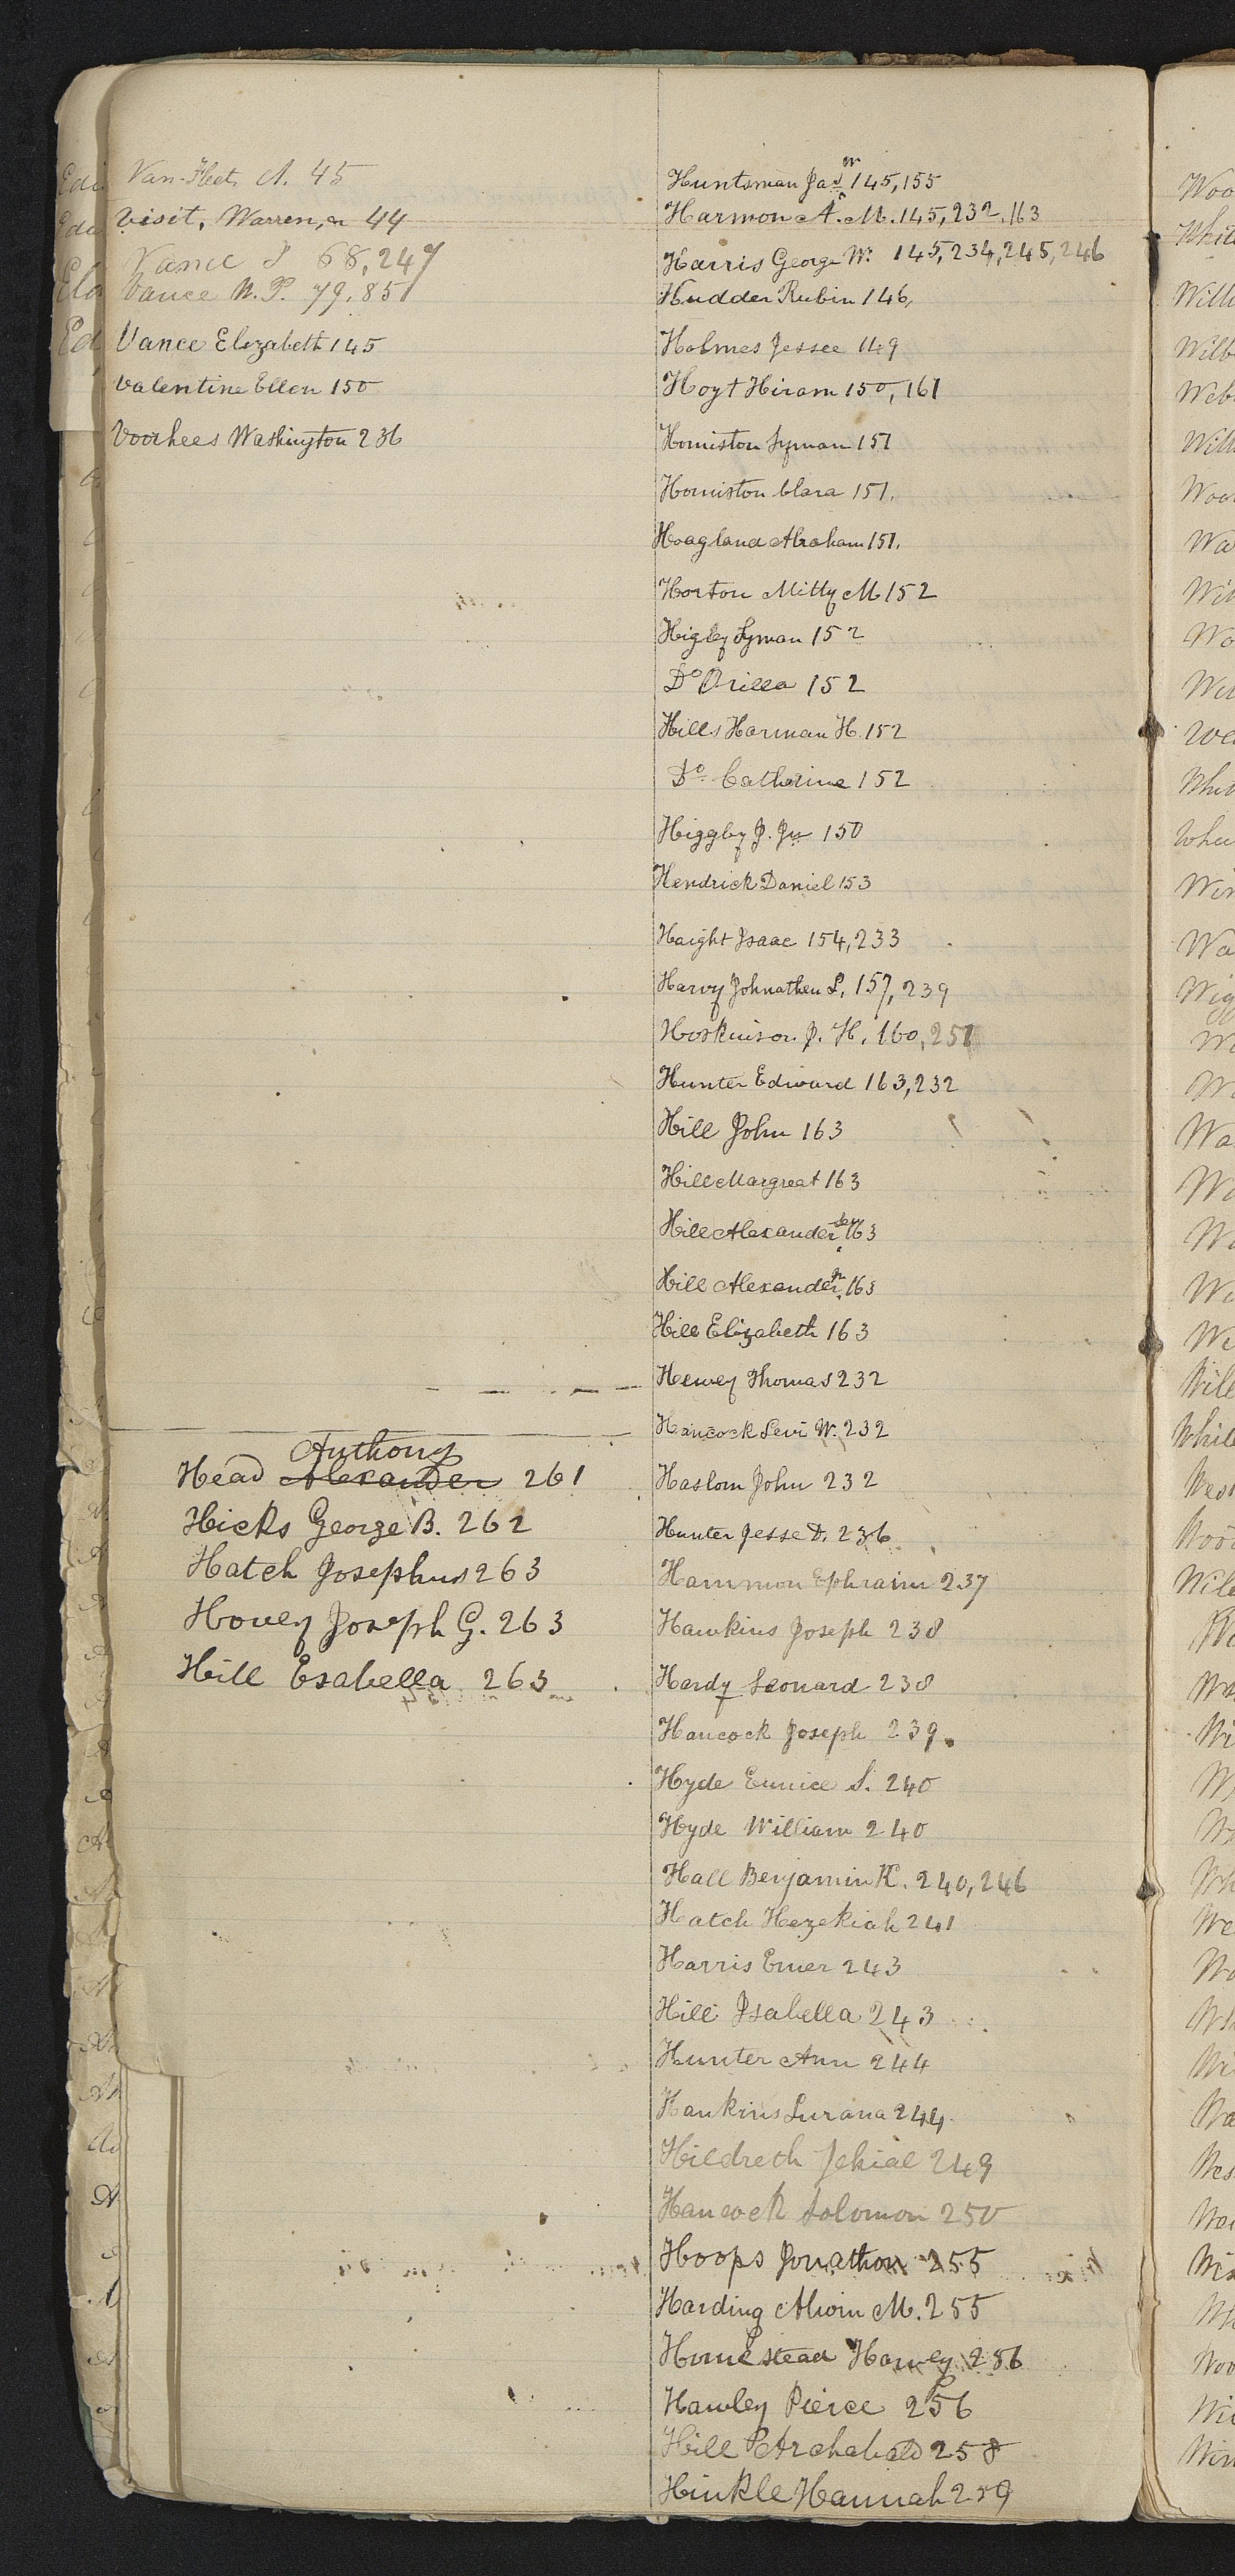 Van-Fleet A. 45
Visit, Warren, 44
Vance J 68, 247
Vance N. P. 79, 85
Vance Elizabeth 145
Valentine Ellen 150
Voorhees Washington 236
Anthony
Head Alexander 261
Hicks George B. 262
Hatch Josephus 263
Hovey Joseph G. 263
Hill Esabella 263
Huntsman Jas W 145, 155
Harmon A. M. 145, 232, 163
Harris George W. 145, 234, 245, 246
Hudder Rubin 146,
Holmes Jessee 149
Hoyt Hiram 150, 161
Homiston Lyman 151
Homiston Clara 151.
Hoagland Abraham 151.
Horton Mitty M 152
Higley Lyman 152
Do Orilla 152
Hills Harman H. 152
Do Catharine 152
Higgby J. Ju 150
Hendrick Daniel 153
Haight Isaac 154, 233
Harvy Johnathen L, 157, 239
Hoskinson J. H. 160, 251
Hunter Edward 163, 232
Hill John 163
Hill Margreat 163
Hill Alexander Sen 163
Hill Alexander Jr 163
Hill Elizabeth 163
Thomas 232
Hancock Levi W. 232
Haslom John 232
Hunter Jesse D. 236
Hammon Ephraim 237
Hawkins Joseph 238
Hardy Leonard 238
Hancock Joseph 239.
Hyde Eunice S. 240
Hyde William 240
Hall Benjamin K. 240, 246
Hatch Hezekiah 241
Harris Emer 243
Hill Isabella 243
Hunter Ann 244
Hankins Lurana 244.
Hildreth Jehial 249
Hancock Solomon 250
Hoops Jonathon 255
Harding Alvin M. 255
Homestead Harvey 256
Hawley Pierce 256
Hill Archabald 258
Hinkle Hannah 259